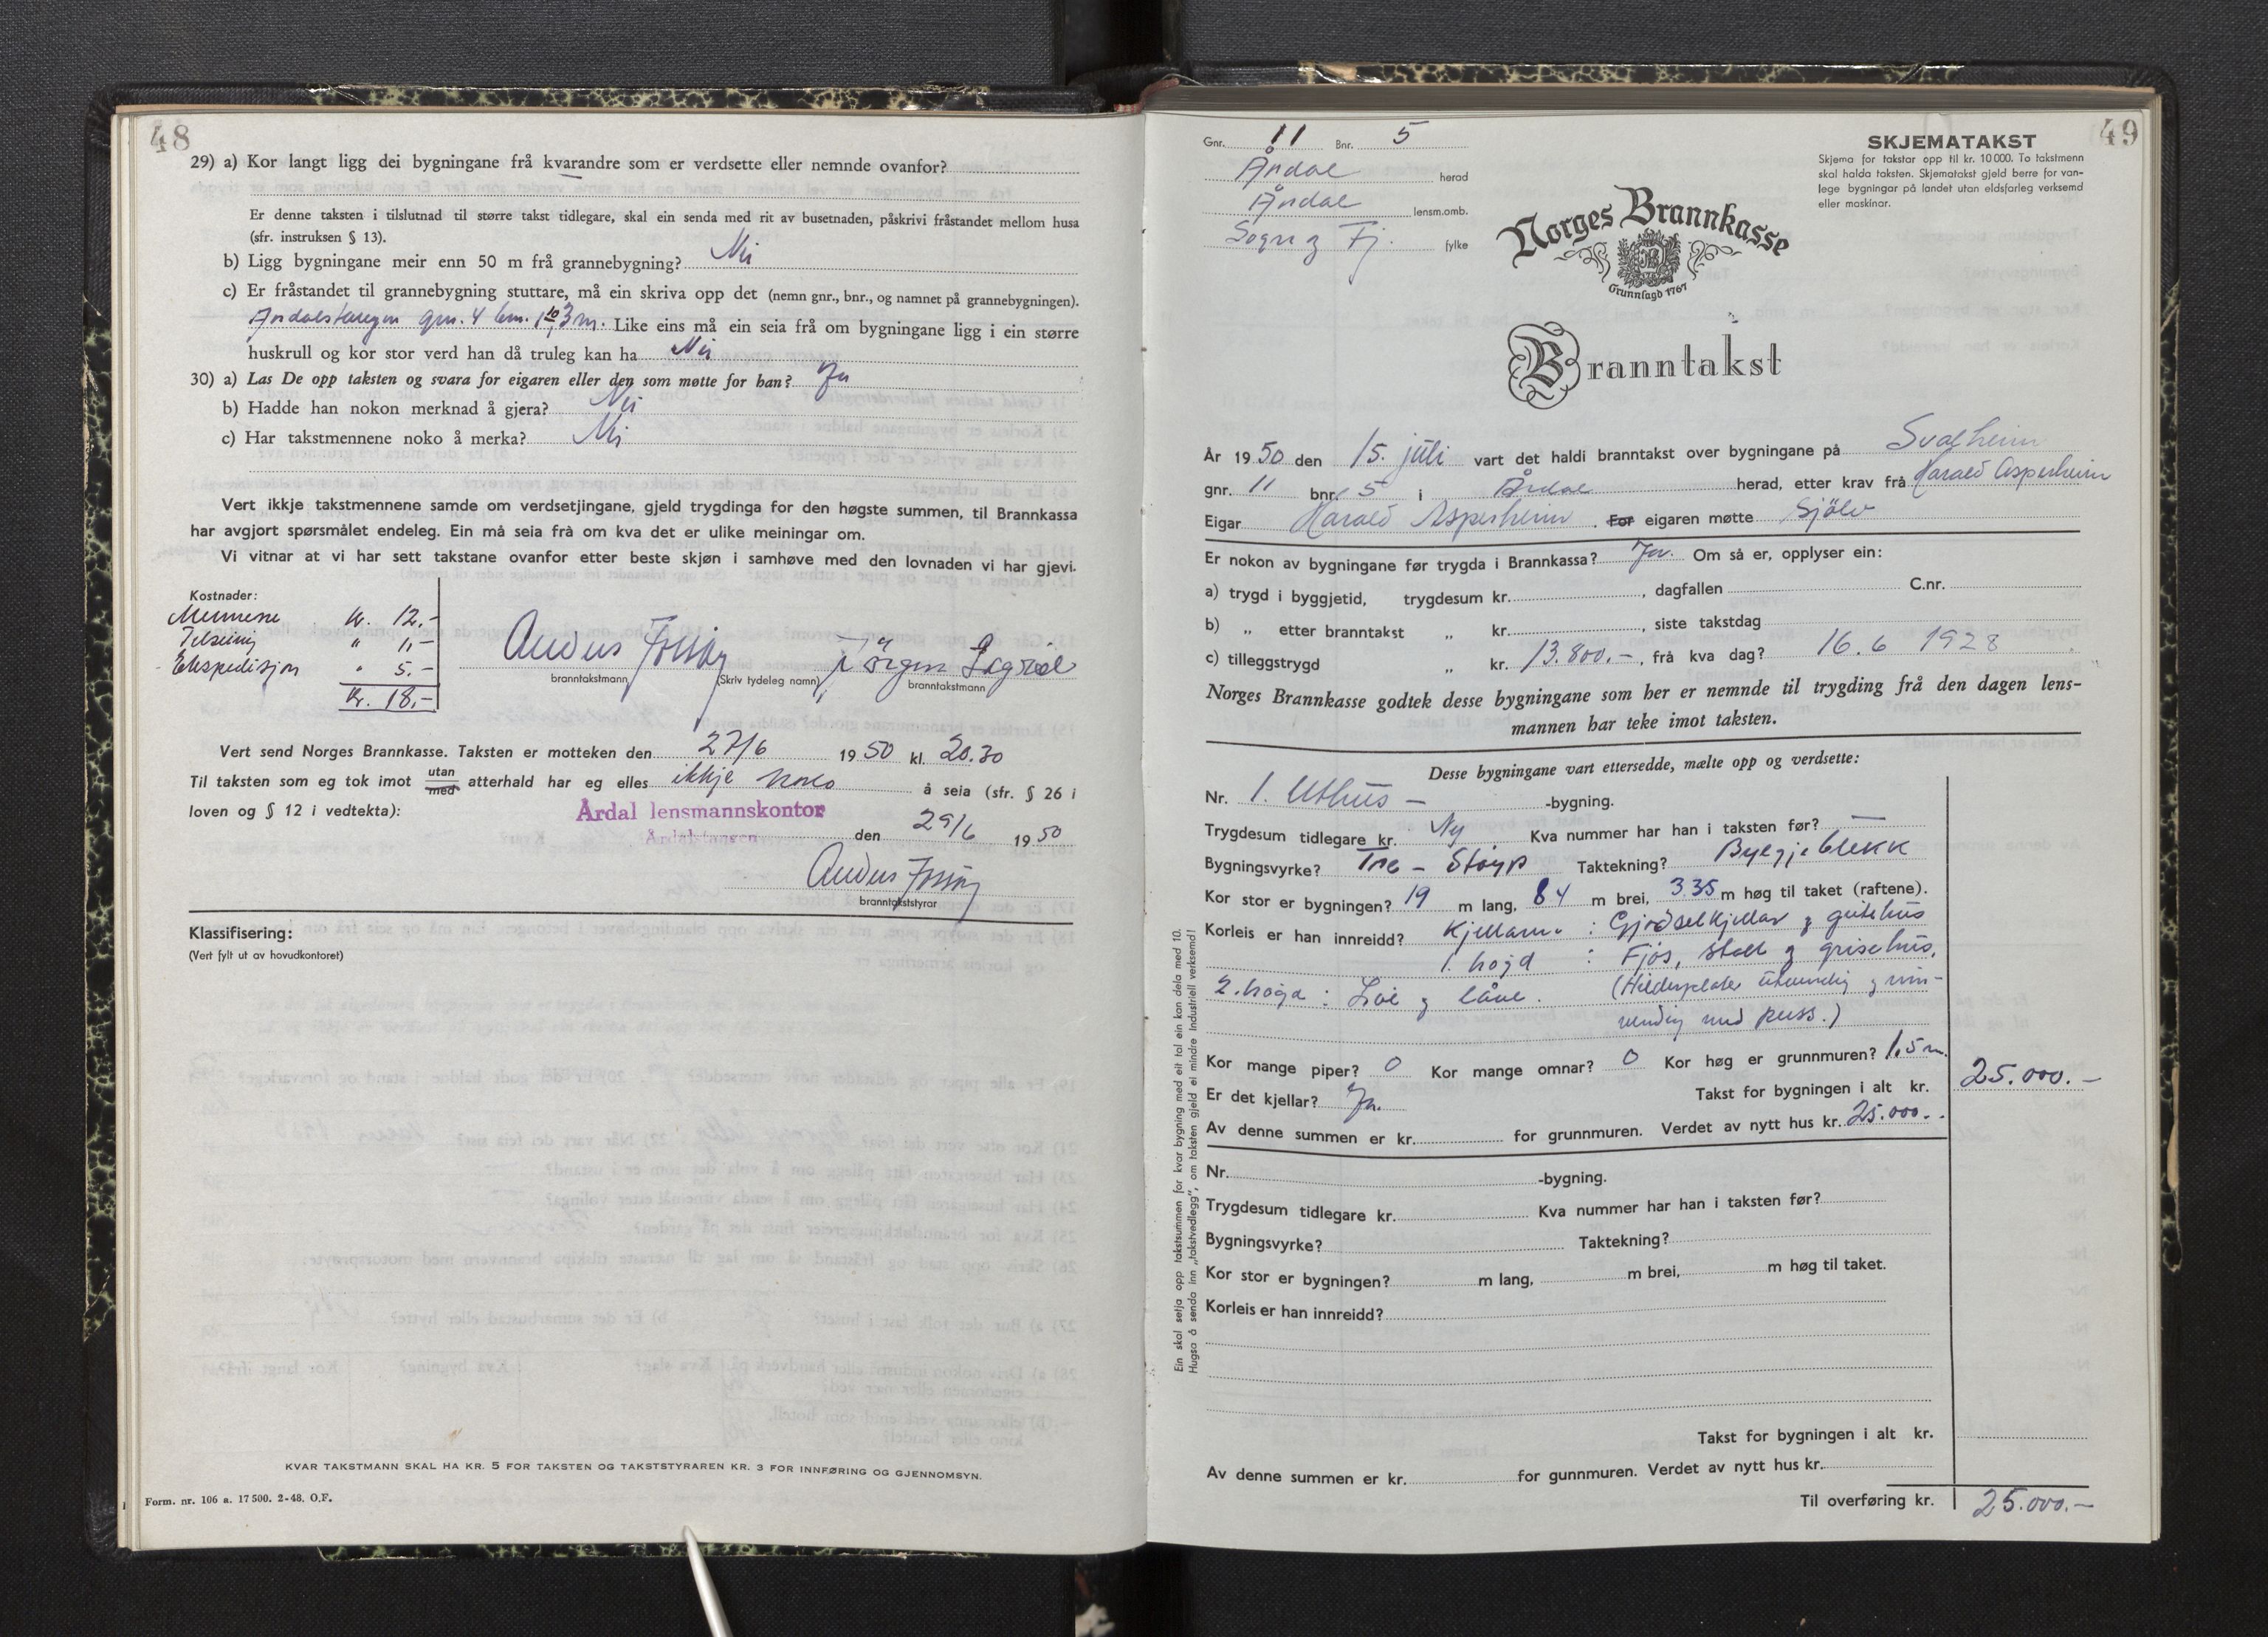 48
29) a) Kor langt ligg dei bygningane frå kvarandre som er verdsette eller nemnde ovanfor?
Er denne taksten i tilslutnad til større takst tidlegare, skal ein senda med rit av busetnaden, påskrivi fråstandet mellom husa
(sfr. instruksen § 13).
b) Ligg bygningane meir enn 50 m frå grannebygning? Nei
c) Er fråstandet til grannebygning stuttare, må ein skriva opp det (nemn gnr., bnr., og namnet på grannebygningen).
gnr. 4 bnr. 3 m. Like eins må ein seia frå om bygningane ligg i ein større
huskrull og kor stor verd han då truleg kan ha Nei
30) a) Las De opp taksten og svara for eigaren eller den som møtte for han? Ja
b) Hadde han nokon merknad å gjera? Nei
c) Har takstmennene noko å merka? Nei
Vert ikkje takstmennene samde om verdsetjingane, gjeld trygdinga for den høgste summen, til Brannkassa
har avgjort spørsmålet endeleg. Ein må seia frå om kva det er ulike meiningar om.
Vi vitnar at vi har sett takstane ovanfor etter beste skjøn i samhøve med den lovnaden vi har gjevi.
Kostnader:
Mennene kr. 12,-
Telseing " 1,-
Ekspedisjon " 5.-
Kr. 18,-
branntakstmann
(Skriv tydeleg namn)
branntakstmann
Vert send Norges Brannkasse. Taksten er motteken den 27/6 1950 kl. 20.30
Til taksten som eg tok imot utan med atterhald har eg elles ikkje noko å seia (sfr. § 26 i
loven og § 12 i vedtekta):
Årdal lensmannskontor
Årdalstangen den 29/6 1950
branntakststyrar
Klassifisering:
(Vert fylt ut av hovudkontoret)
KVAR TAKSTMANN SKAL HA KR. 5 FOR TAKSTEN OG TAKSTSTYRAREN KR. 3 FOR INNFØRING OG GJENNOMSYN.
Form. nr. 106 a. 17 500. 2-48. O.F.
49
Gnr. 11 Bnr. 5
Årdal herad
Årdal lensm.omb.
Sogn og Fj. fylke
SKJEMATAKST
Skjema for takstar opp til kr. 10 000. To takstmenn
skal halda taksten. Skjematakst gjeld berre for van-
lege bygningar på landet utan eldsfarleg verksemd
eller maskinar.
Norges Brannkasse
Grunnlagd 1767
Branntakst
År 1950 den 15. juli vart det haldi branntakst over bygningane på Svalheim
gnr. 11 bnr. 5 i Årdal herad, etter krav frå Harald Asperheim
Eigar Harald Asperheim. For eigaren møtte Sjölv
Er nokon av bygningane før trygda i Brannkassa? Ja. Om så er, opplyser ein:
a) trygd i byggjetid, trygdesum kr. , dagfallen C.nr.
b) „ etter branntakst „ kr. , siste takstdag
c) tilleggstrygd „ kr. 13.800.-, frå kva dag? 16.6 1928
Norges Brannkasse godtek desse bygningane som her er nemnde til trygding frå den dagen lens-
mannen har teke imot taksten.
Desse bygningane vart ettersedde, mælte opp og verdsette:
Nr. 1. Uthus - -bygning.
Trygdesum tidlegare kr. Ny Kva nummer har han i taksten før? —
Bygningsvyrke? Tre - Støyp Taktekning? Bylgjeblekk
Kor stor er bygningen? 19 m lang, 8 4 m brei, 3.35 m høg til taket (raftene).
Korleis er han innreidd? Kjellaren : Gjødselkjellar og geitehus
1. høgd : Fjøs, stall og grisehus.
2. høgd : Løe og låve. (Heldenplater utvendig og inn-
vendig med puss.)
Kor mange piper? 0 Kor mange omnar? 0 Kor høg er grunnmuren? 1,5 m.
Er det kjellar? Ja. Takst for bygningen i alt kr. 25.000.-
Av denne summen er kr. for grunnmuren. Verdet av nytt hus kr. 25.000.-
Nr. -bygning.
Trygdesum tidlegare kr. Kva nummer har han i taksten før?
Bygningsvyrke? Taktekning?
Kor stor er bygningen? m lang, m brei, m høg til taket.
Korleis er han innreidd?
Takst for bygningen i alt kr.
Av denne summen er kr. for gunnmuren. Verdet av nytt hus kr.
Til overføring kr. 25.000.-
Ein skal setja opp takstsummen for kvar bygning med eit tal ein kan dela med 10.
Hugsa å senda inn „takstvedlegg", om taksten gjeld ei mindre industriell verksemd!